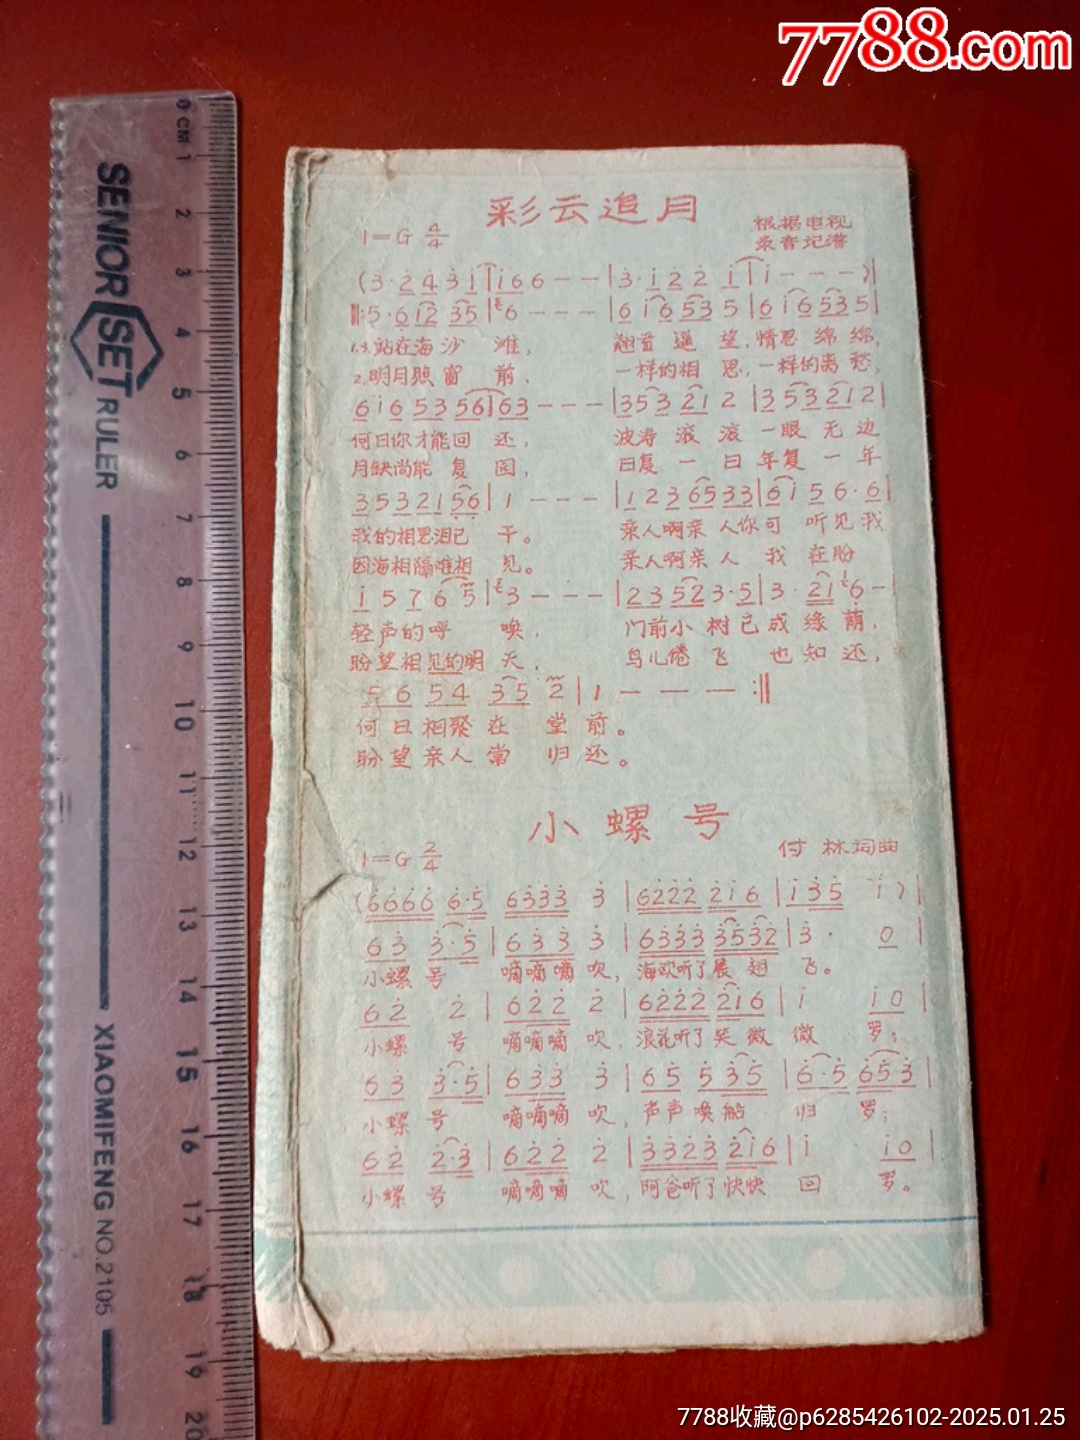 7788.com
0 CM 1
2
3
4
5
6
7
8
9
10
11
12
13
14
15
16
17
18
19
20
SENIOR SET RULER
XIAOMIFENG NO.2105
彩云追月
1=G 4/4
根据电视
录音记谱
(3·2 4 3 1|1 6 6 - - |3·1 2 2 1|1 - - - )|
‖:5·6 12 35|6 - - - |6 16 53 5|6 16 53 5|
1.3.站在海沙 滩, 翘首遥望,情思绵绵,
2.明月照窗 前, 一样的相思,一样的离愁,
6 16 53 56|63 - - - |3 53 21 2|3 53 21 2|
何日你才能回 还, 波涛滚滚一眼无边
月缺尚能复 圆, 日复一日年复一年
35 32 1 56|1 - - - |1 2 3 65 33|6 1 5 6·6|
我的相思泪已 干。 亲人啊亲人你可 听见我
因海相隔难相 见。 亲人啊亲人 我 在盼
1 5 7 6 5|3 - - - |23 52 3·5|3·21 6 -|
轻声的呼 唤, 门前小树已成缘荫,
盼望相见的明 天, 鸟儿倦飞 也知还,
5 6 5 4 3 5 2|1 - - - :‖
何日相聚在 堂前。
盼望亲人常 归还。
小螺号
1=G 2/4
付 林词曲
(6666 6·5 6333 3|6222 216|135 1)|
63 3·5|633 3|6333 3532|3· 0|
小螺号 嘀嘀嘀吹,海欧听了展翅 飞。
62 2|622 2|6222 216|1 10|
小螺 号 嘀嘀嘀吹,浪花听了笑微微 罗;
63 3·5|633 3|65 535|6·5 653|
小螺号 嘀嘀嘀吹,声声唤船 归 罗;
62 2·3|622 2|3323 216|1 10|
小螺号 嘀嘀嘀吹,阿爸听了快快 回 罗。
7788收藏@p6285426102-2025.01.25